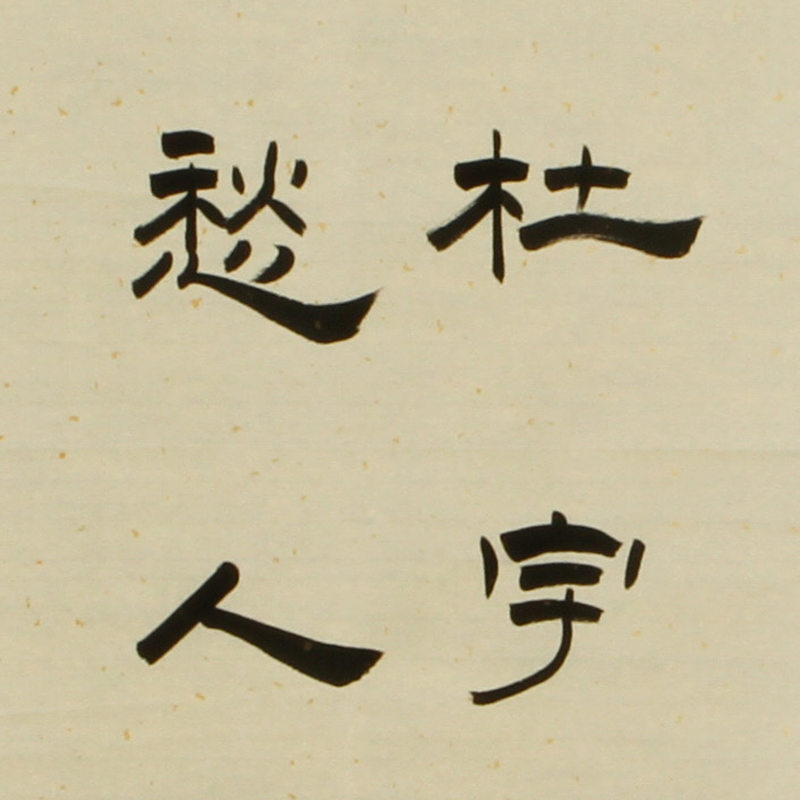 杜宇
愁人